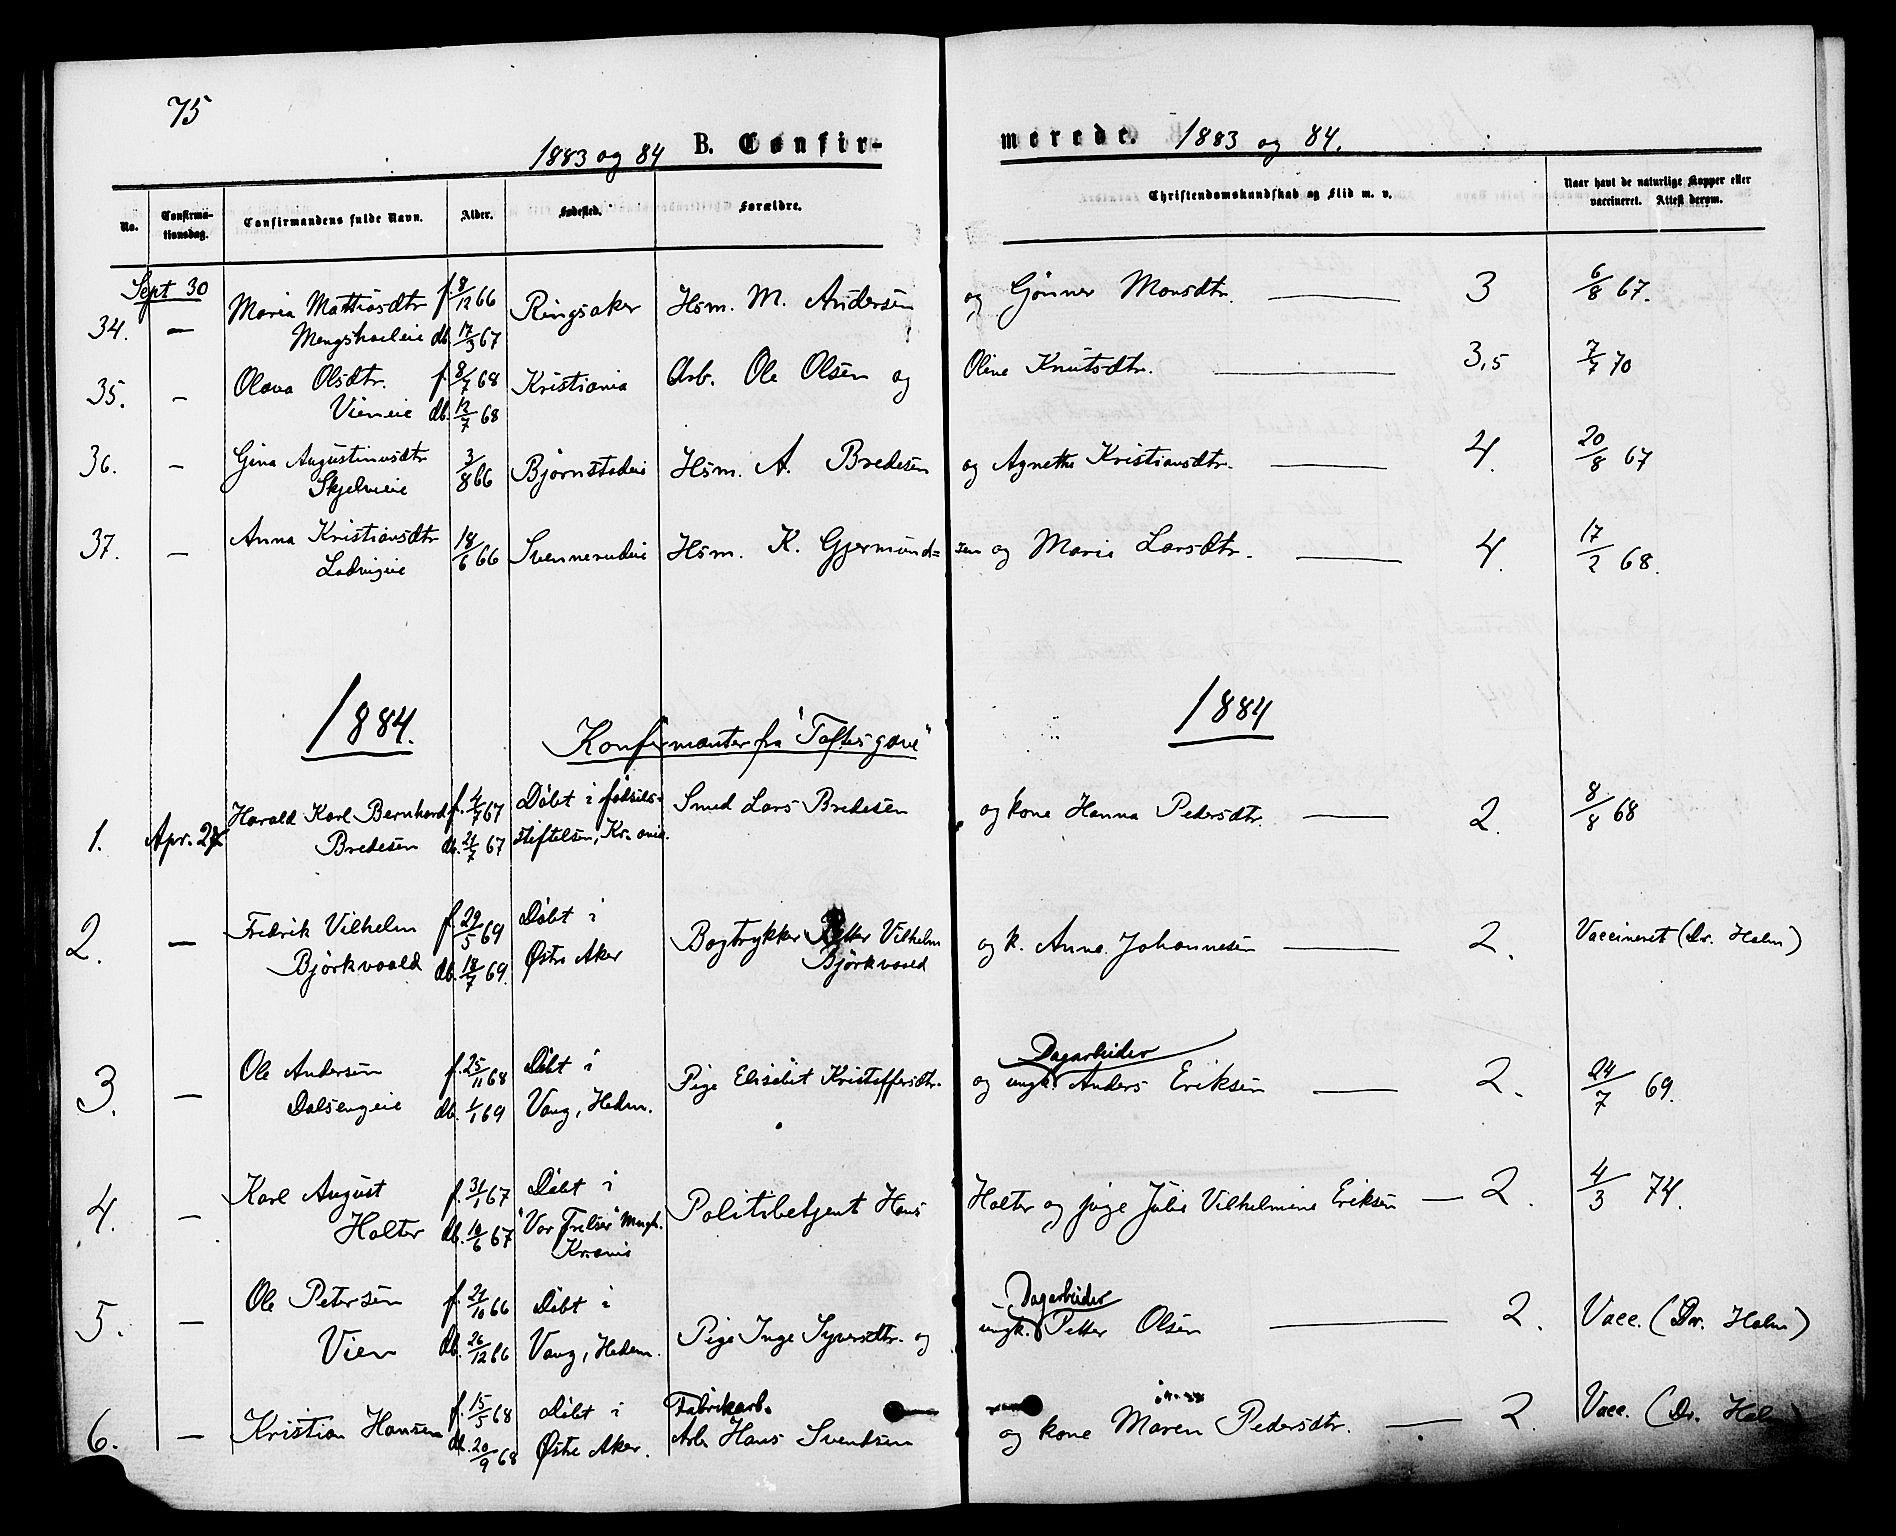 75
1883 og 84 B. Confir- merede. 1883 og 84.
No. Confirma-tionsdag. Confirmandens fulde Navn. Alder. Fødested. Forældre. Christendomskundskab og Flid m. v. Naar havt de naturlige Kopper eller vaccineret. Attest derom.
Sept 30
34. — Maria Mattiasdtr f. 8/12 66 Ringsaker Hsm. M. Andersen og Gjønner Monsdtr. — 3 6/8 67.
Mengshoeleie db. 17/3 67
35. — Olava Olsdtr. f. 8/7 68 Kristiania Arb. Ole Olsen og Oline Knutsdtr. — 3,5 7/7 70
Vieneie db. 12/7 68
36. — Gina Augustinusdtr 3/8 66 Bjørnstadeie Hsm. A. Bredesen og Agnethe Kristiansdtr. — 4. 20/8 67
Skjelveie
37. — Anna Kristiansdtr 18/6 66 Svennerudeie Hsm. K. Gjermund= sen og Maria Larsdtr. — 4. 17/2 68.
Ladvigeie
1884. Konfirmanter fra "Toftesgave" 1884
1. Apr. 27 Harald Karl Bernhard f. 4/7 67 Døbt i fødsels- Smed Lars Bredesen og kone Hanna Pedersdtr. — 2. 8/8 68
Bredesen db. 21/7 67 stiftelsen, Kr.ania.
2. — Fredrik Vilhelm f. 29/5 69 Døbt i Bogtrykker Petter Vilhelm og k. Anna Johannesen — 2. Vaccineret (Dr. Holm)
Bjørkvaald db. 18/7 69. Østre Aker Bjørkvaald
Dagarbeider
3. — Ole Andersen f. 25/11 68 Døbt i Pige Elisebet Kristoffersdtr. og ungk. Anders Eriksen — 2. 24/7 69.
Dalsengeie db. 1/1 69 Vang, Hedm.
4. — Karl August f. 31/1 67 Døbt i Politibetjent Hans Holter og pige Julie Vilhelmine Eriksen — 2. 4/3 74.
Holter db. 10/6 67 "Vor Frelser" Mngh.
Kr.ania
Dagarbeider
5. — Ole Petersen f. 21/10 66 Døbt i Pige Inge Syversdtr. og ungk. Petter Olsen — 2. Vacc. (Dr. Holm)
Vien db. 26/12 66 Vang, Hedm.
Fabrikarb.
6. — Kristian Hansen f. 15/5 68 Døbt i Arb. Hans Svendsen og kone Maren Pedersdtr. — 2. Vacc. (Dr. Holm)
db. 20/9 68 Østre Aker.